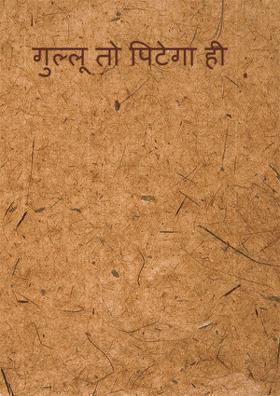 गुल्लू तो पिटेगा ही